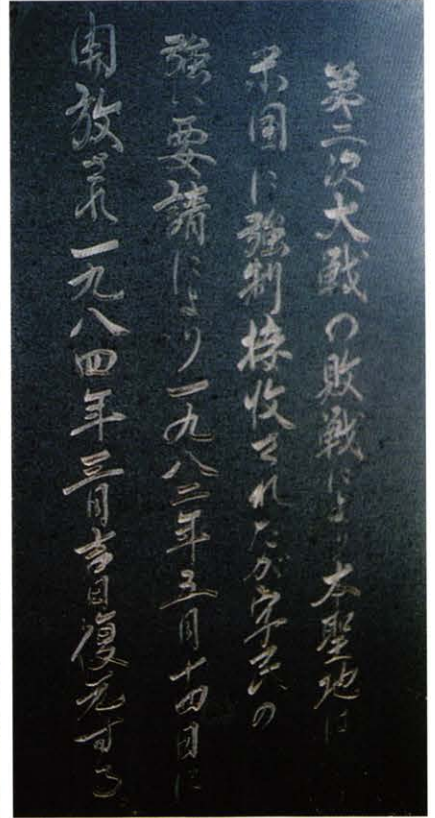 第二次大戦の敗戦により本聖地は
米国に強制接収されたが字民の
強い要請により一九八二年五月十四日に
開放され一九八四年三月吉日復元する